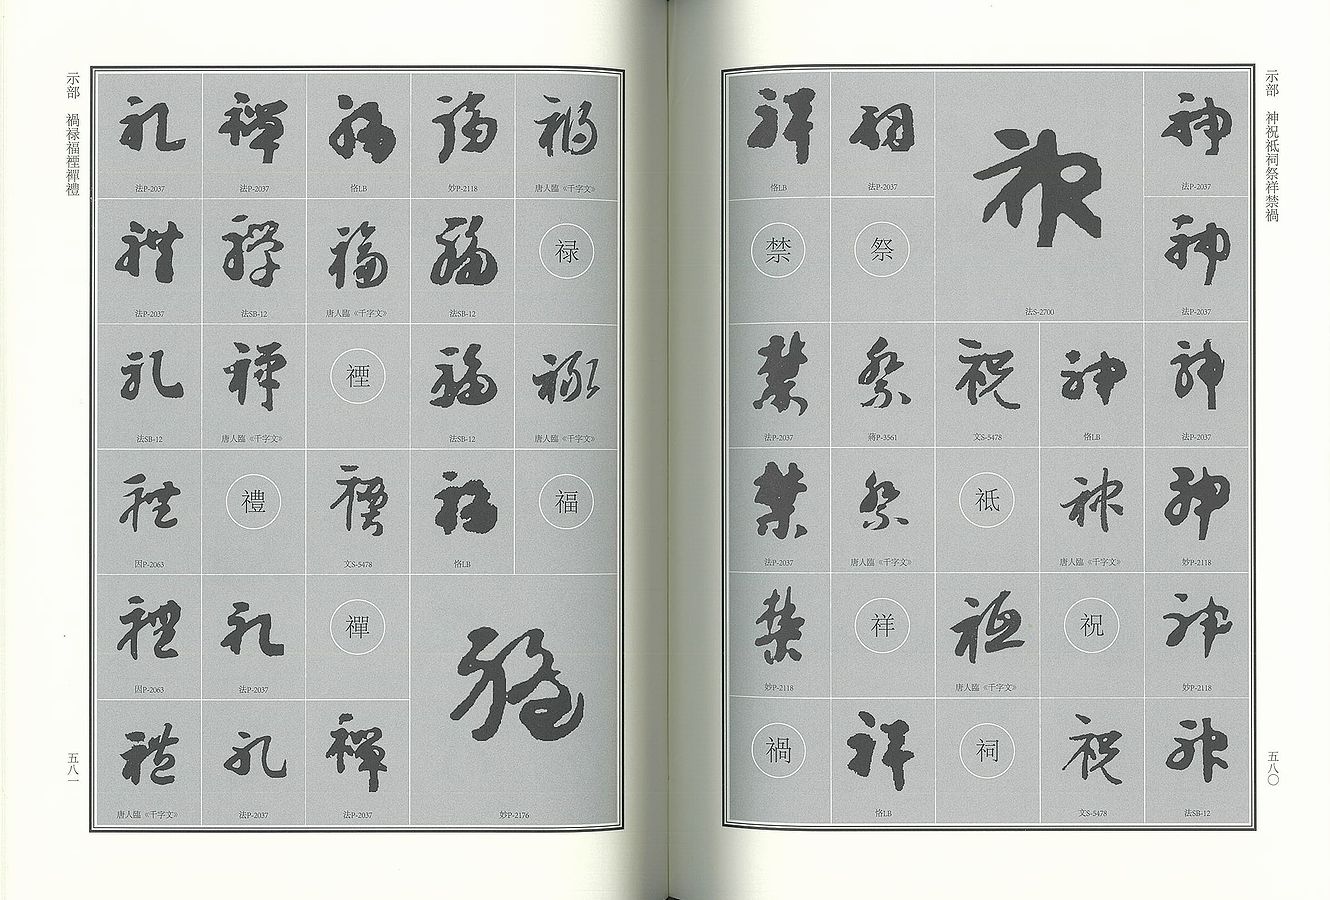 示部　神祝祗祠祭祥禁禍
神
法P-2037
神
法P-2037
神
法P-2037
神
妙P-2118
神
妙P-2118
神
法SB-12
神
法S-2700
神
恪LB
神
唐人臨《千字文》
祝
祝
文S-5478
祝
文S-5478
祗
祗
唐人臨《千字文》
祠
祠
法P-2037
祭
祭
蔣P-3561
祭
唐人臨《千字文》
祥
祥
恪LB
祥
恪LB
禁
禁
法P-2037
禁
法P-2037
禁
妙P-2118
禍
五八〇
示部　禍禄福禋禪禮
禍
唐人臨《千字文》
禄
禄
唐人臨《千字文》
福
福
妙P-2176
福
妙P-2118
福
法SB-12
福
法SB-12
福
恪LB
福
恪LB
福
唐人臨《千字文》
禋
禋
文S-5478
禪
禪
法P-2037
禪
法P-2037
禪
法SB-12
禪
唐人臨《千字文》
禮
禮
法P-2037
禮
法P-2037
禮
法P-2037
禮
法P-2037
禮
法SB-12
禮
因P-2063
禮
因P-2063
禮
唐人臨《千字文》
五八一